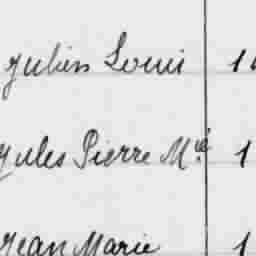 Julien Louis 1
Jules Pierre M.ie 1
Jean Marie 1